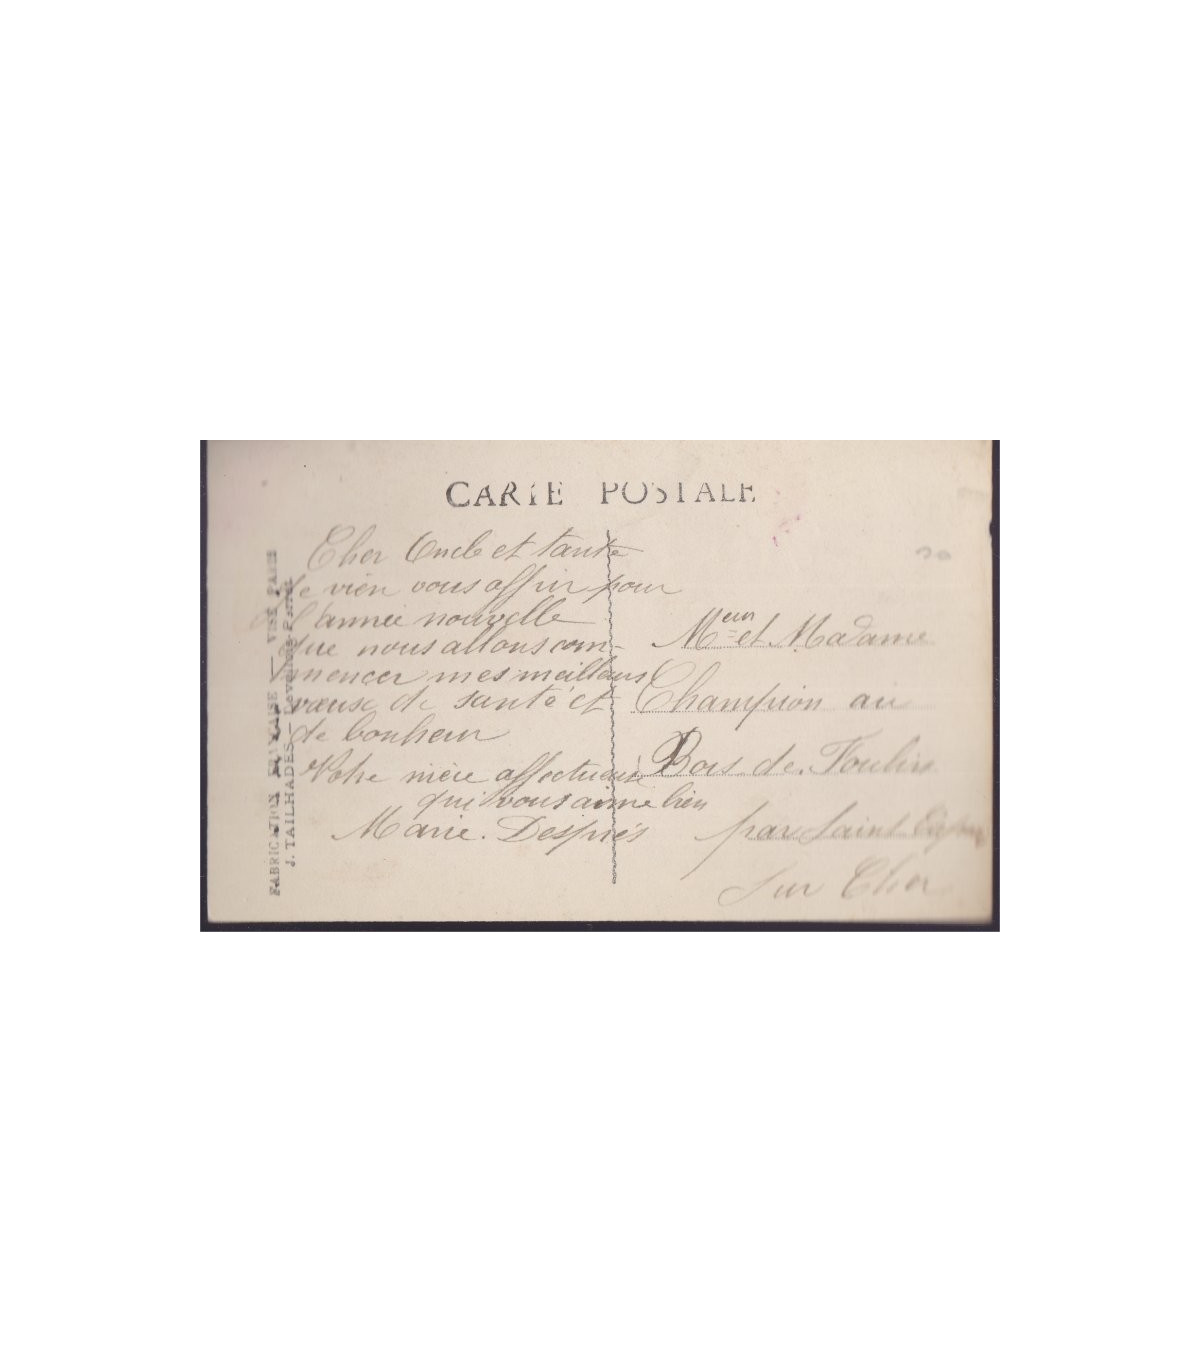 CARTE POSTALE
Cher Oncle et tante
Je vien vous offrir pour
l'année nouvelle
que nous allons com-
mencer mes meilleurs
vœux de santé et
de bonheur
Votre nièce affectueuse
qui vous aime bien
Marie. Després
Meur et Madame
Champion au
Bois de
par Saint
Sur Cher
FABRICATION FRANÇAISE — VISÉ PARIS
J. TAILHADES —